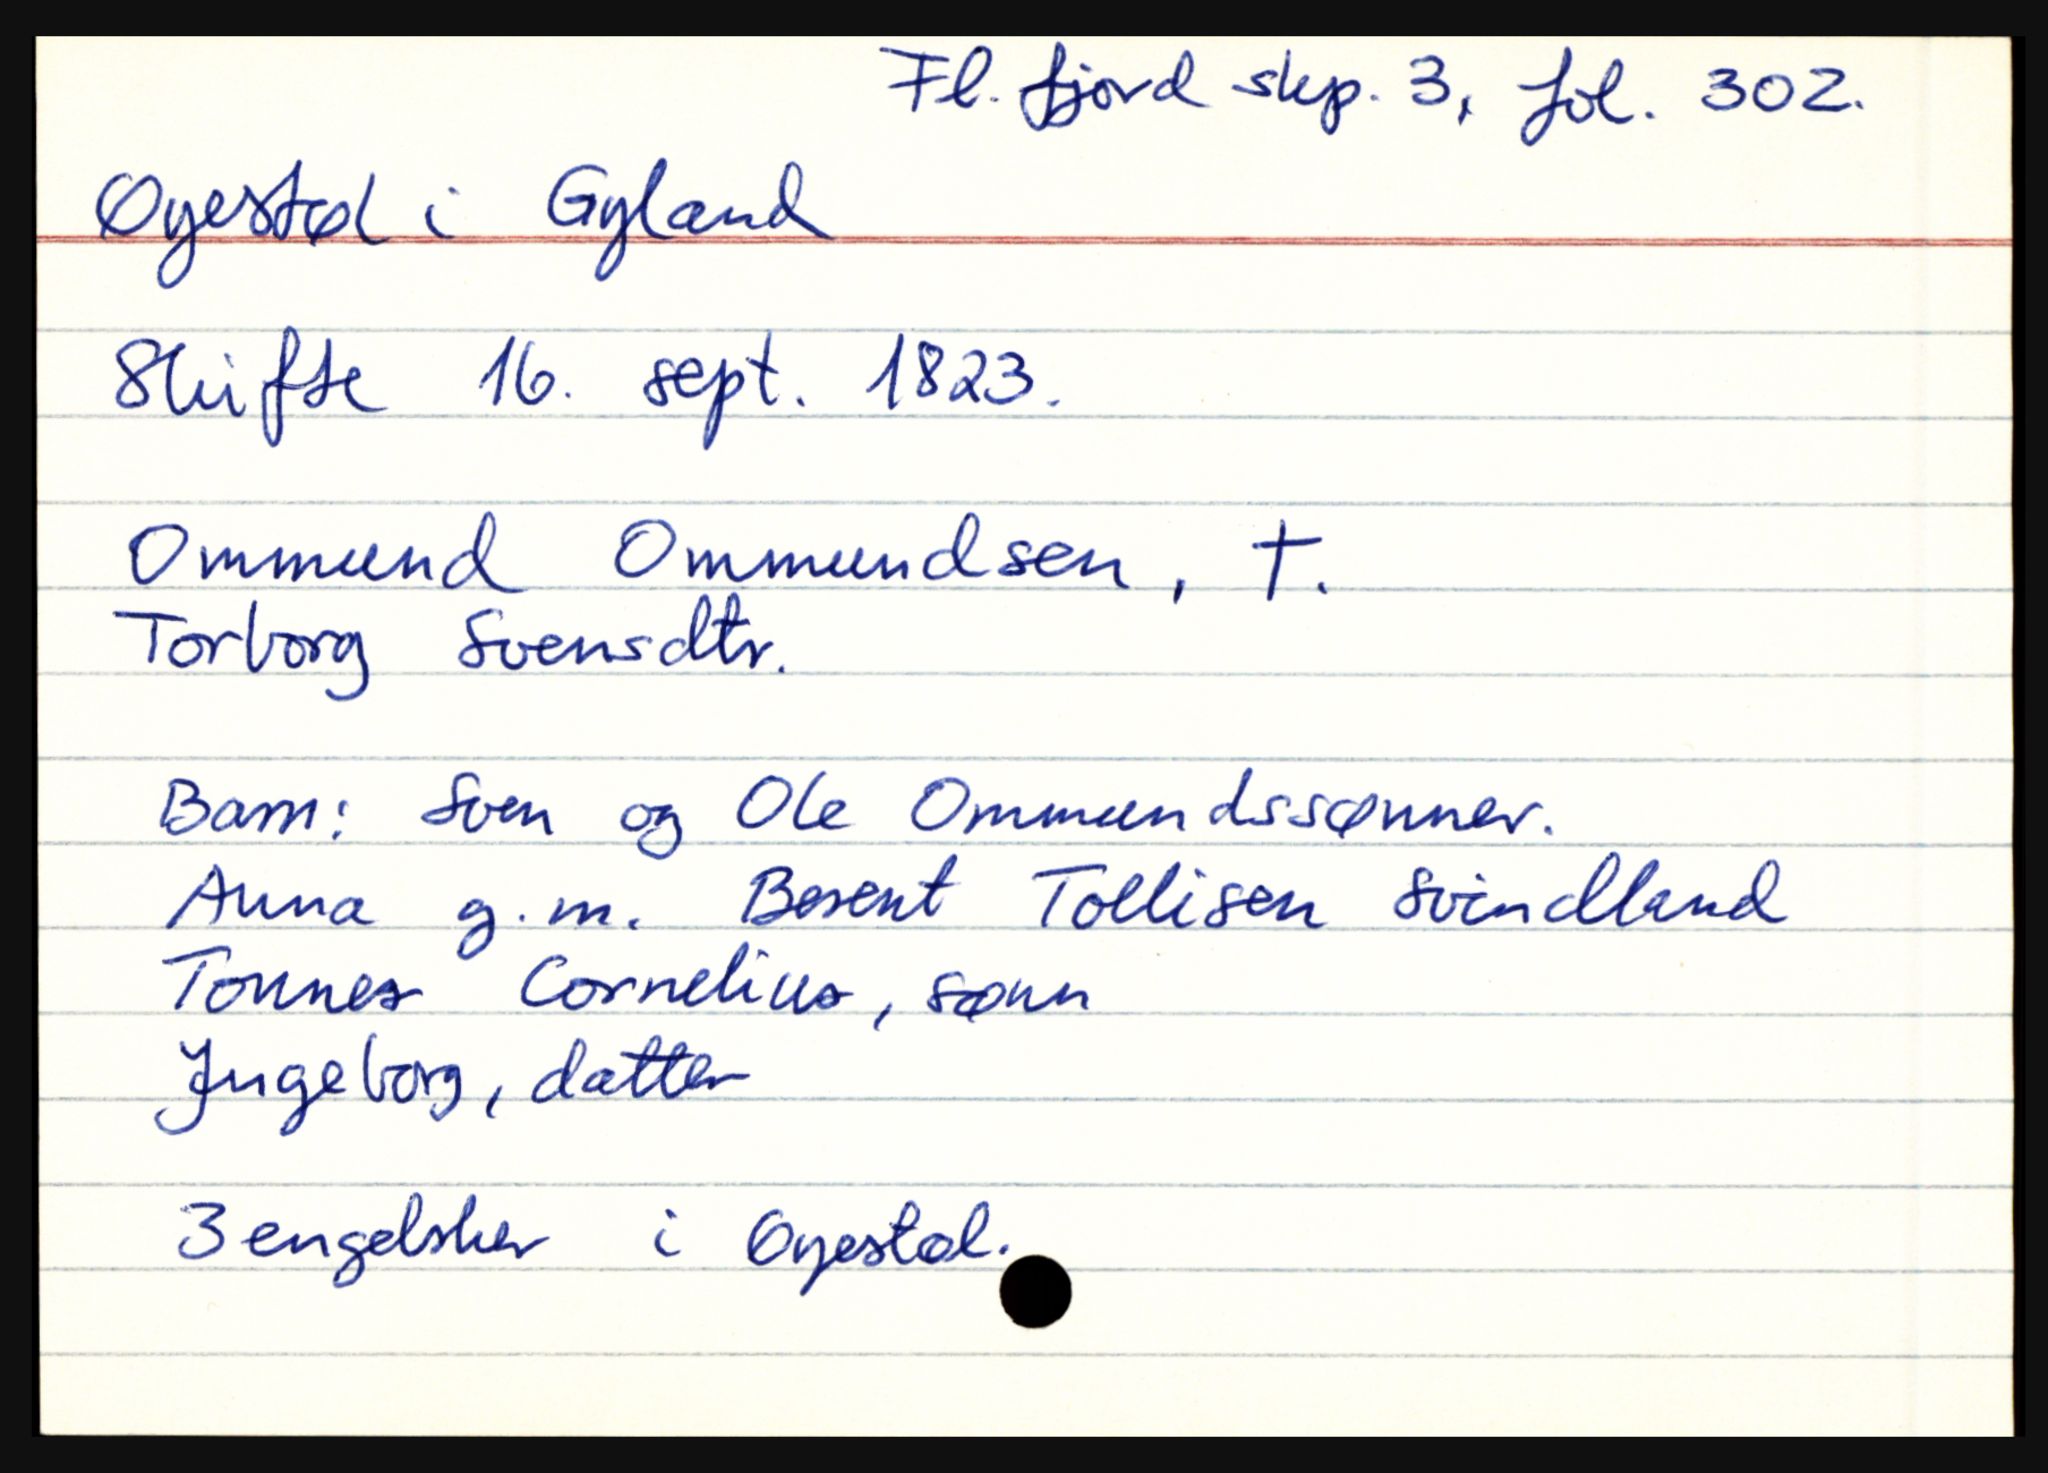 Fl. fjord skp. 3, fol. 302.
Øyestøl i Gyland
Skifte 16. sept. 1823.
Ommund Ommundsen, †.
Torborg Svensdtr.
Barn: Sven og Ole Ommundssønner.
Anna g.m. Berent Tollisen Svindland
Tønnes Cornelius, sønn
Ingeborg, datter
3 engelsker i Øyestøl.